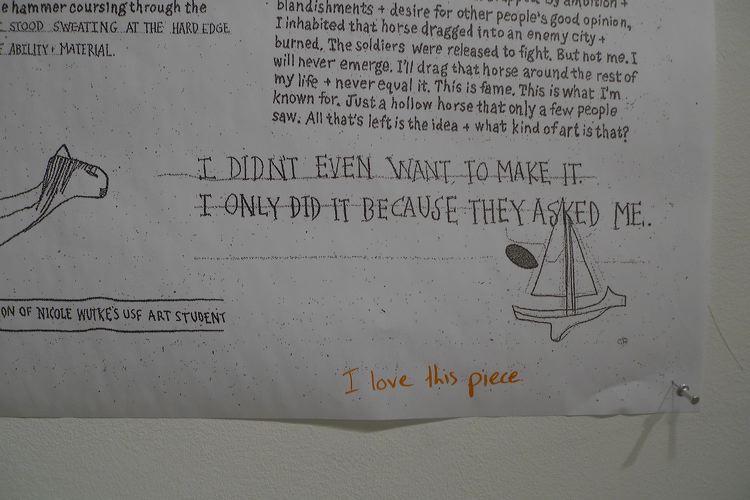 e hammer coursing through the
STOOD SWEATING AT THE HARD EDGE
F ABILITY + MATERIAL.
by ambition +
blandishments + desire for other people's good opinion,
I inhabited that horse dragged into an enemy city +
burned. The soldiers were released to fight. But not me. I
will never emerge. I'll drag that horse around the rest of
my life + never equal it. This is fame. This is what I'm
known for. Just a hollow horse that only a few people
saw. All that's left is the idea + what kind of art is that?
I DIDN'T EVEN WANT TO MAKE IT.
I ONLY DID IT BECAUSE THEY ASKED ME.
ON OF NICOLE WUTKE'S USF ART STUDENT
I love this piece